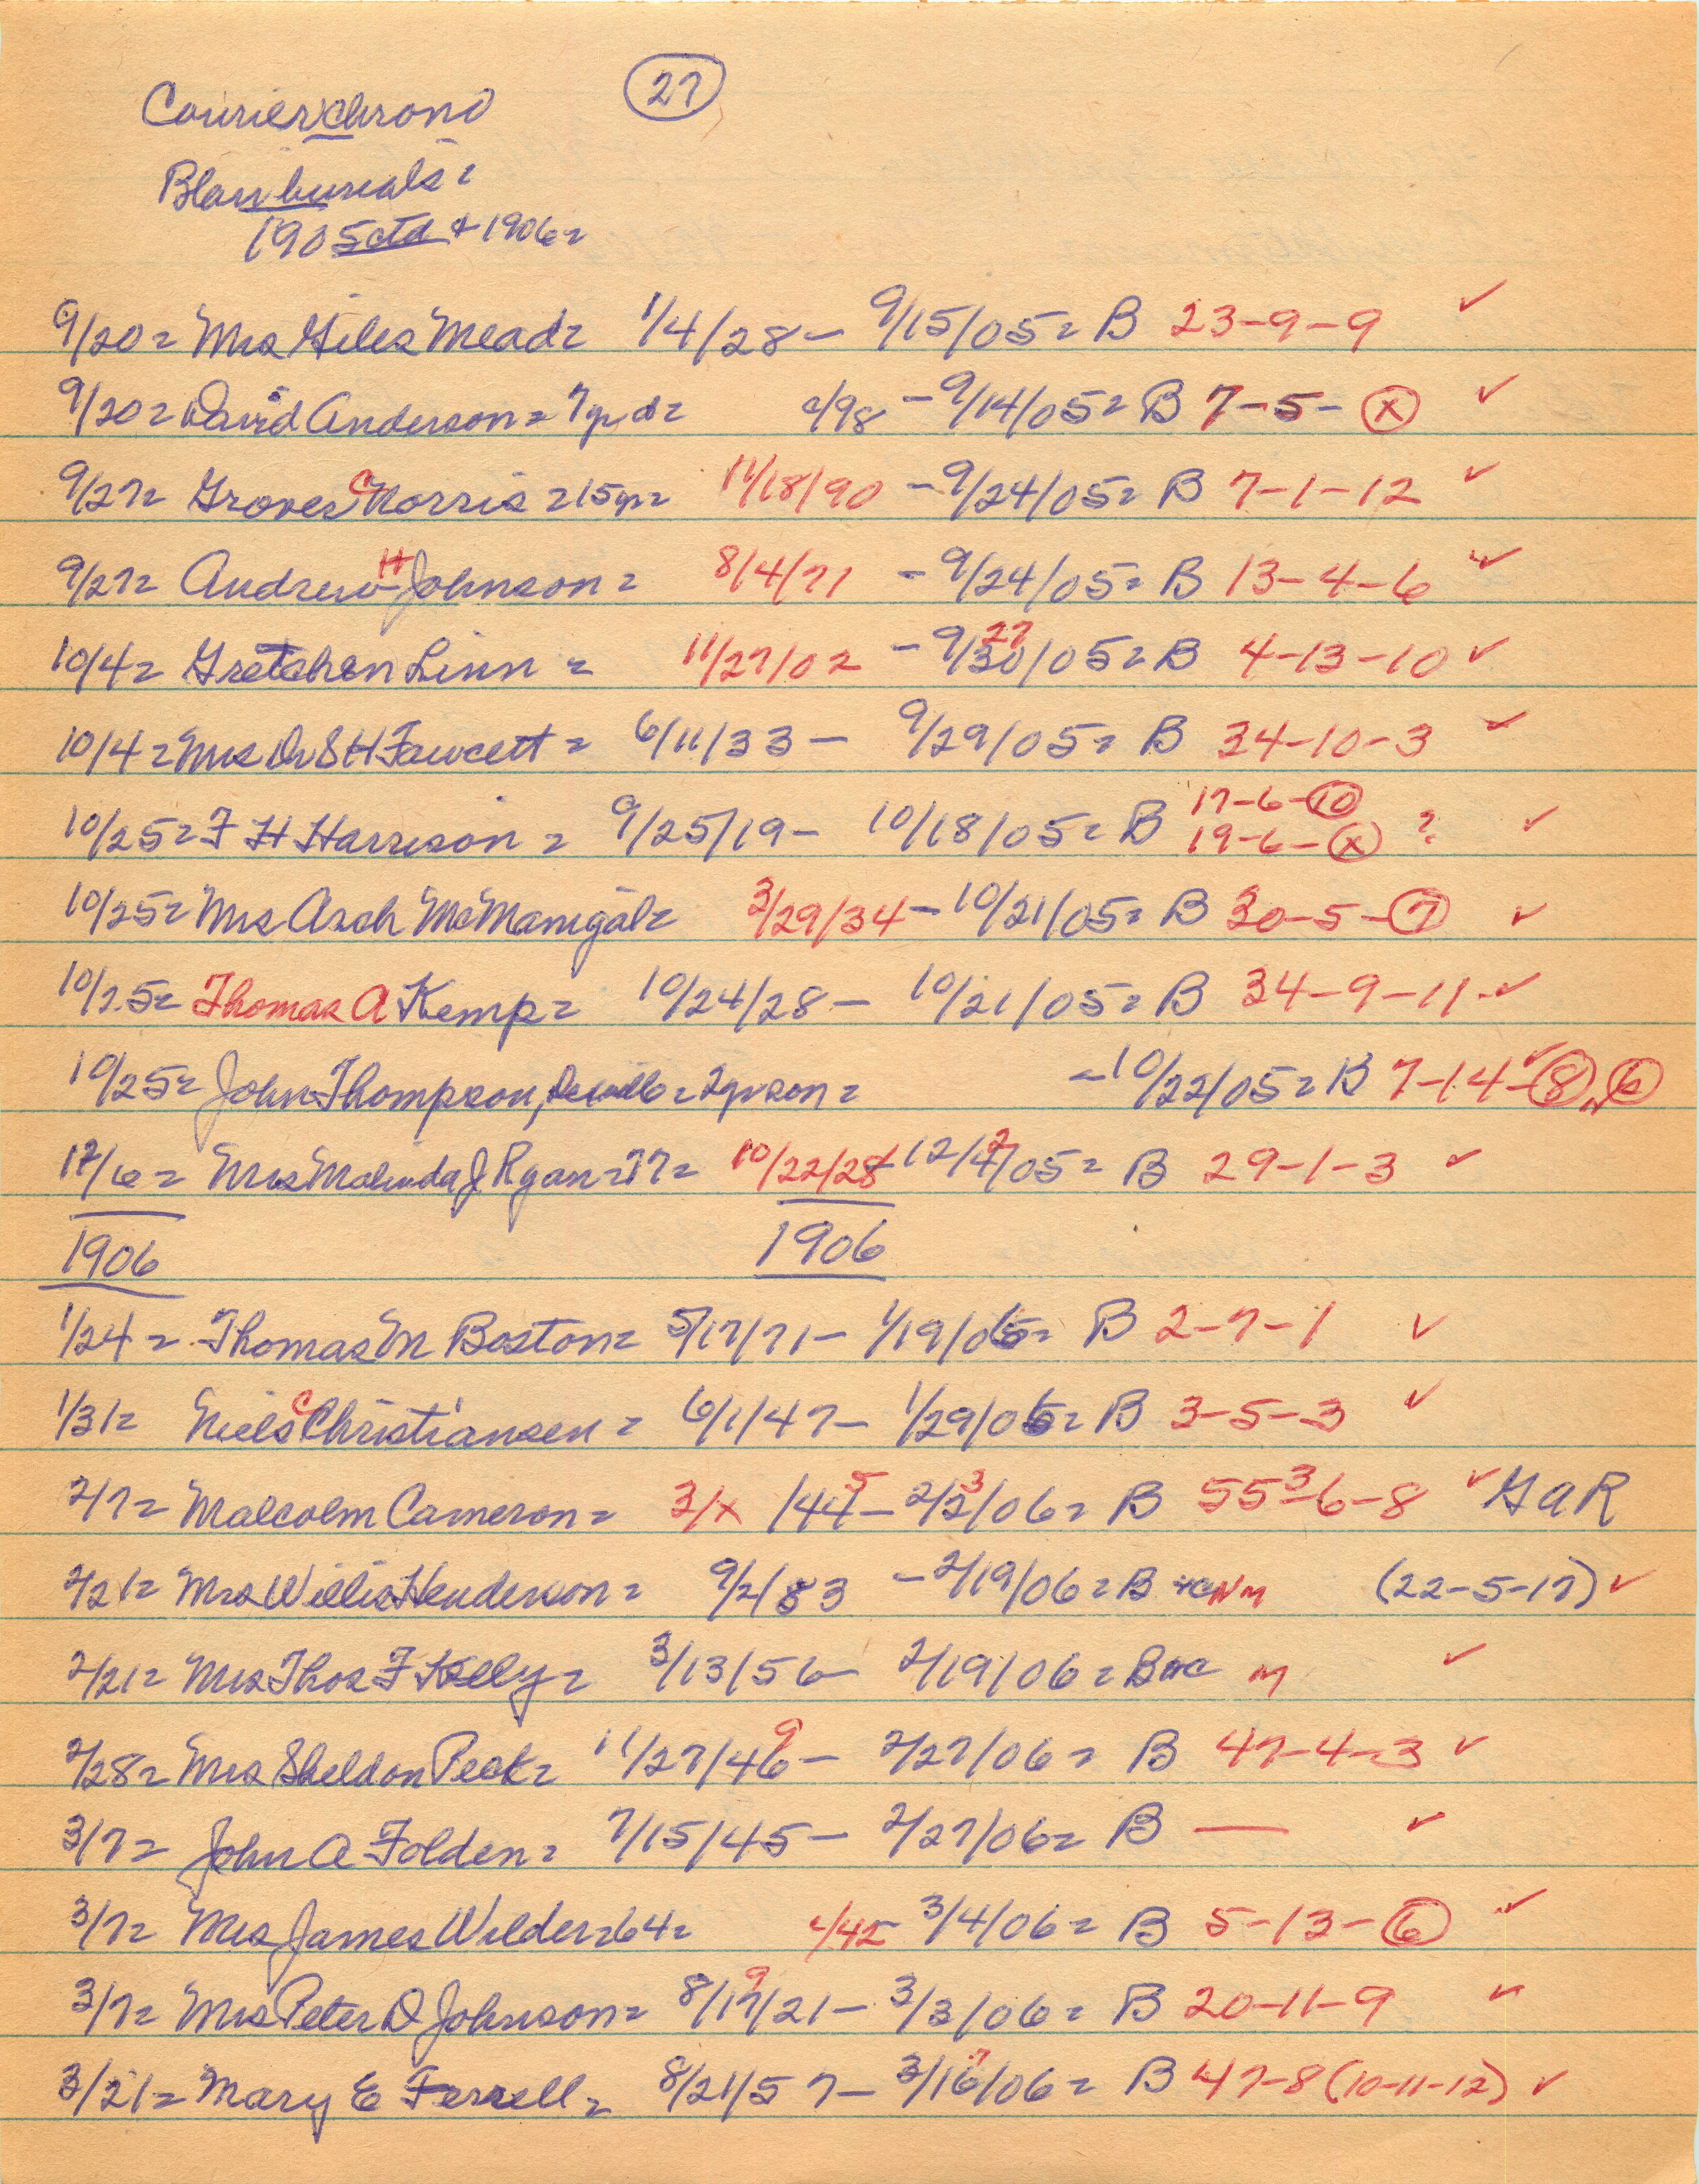 27
Courier chrono
Blair burials =
1905 ctd & 1906 =
9/20 = Mrs Giles Mead = 1/4/28 – 9/15/05 = B 23-9-9 ✓
9/20 = David Anderson = 7 yr d = c/98 – 9/14/05 = B 7-5- X ✓
9/27 = Grover C Norris = 15 yr = 11/18/90 – 9/24/05 = B 7-1-12 ✓
9/27 = Andrew H Johnson = 8/4/71 – 9/24/05 = B 13-4-6 ✓
10/4 = Gretchen Linn = 11/27/02 – 9/30/05 = B 4-13-10 ✓
27
10/4 = Mrs Dr S H Fawcett = 6/11/33 – 9/29/05 = B 34-10-3 ✓
10/25 = F H Harrison = 9/25/19 – 10/18/05 = B 17-6-10
19-6- X ? ✓
10/25 = Mrs Arch McManigal = 3/29/34 – 10/21/05 = B 30-5-7 ✓
10/25 = Thomas A Kemp = 10/24/28 – 10/21/05 = B 34-9-11 ✓
10/25 = John Thompson, = 2 yr son = – 10/22/05 = B 7-14-8, 6 ✓
12/6 = Mrs Malinda J Ryan = 77 = 10/22/28 – 12/4/05 = B 29-1-3 ✓
2
1906 1906
1/24 = Thomas M Boston = 5/17/71 – 1/19/06 = B 2-7-1 ✓
1/31 = Niels C Christiansen = 6/1/47 – 1/29/06 = B 3-5-3 ✓
2/7 = Malcolm Cameron = 3/x /44 – 2/2/06 = B 55-6-8 ✓ G A R
5 3 3
2/21 = Mrs Willis Henderson = 9/2/83 – 2/19/06 = B NM (22-5-17) ✓
2/21 = Mrs Thos F Kelly = 3/13/56 – 2/19/06 = B m ✓
2/28 = Mrs Sheldon Peck = 11/27/46 – 2/27/06 = B 47-4-3 ✓
9
3/7 = John A Folden = 7/15/45 – 2/27/06 = B — ✓
3/7 = Mrs James Wilder = 64 = c/42 – 3/4/06 = B 5-13-6 ✓
3/7 = Mrs Peter D Johnson = 8/17/21 – 3/3/06 = B 20-11-9 ✓
9
3/21 = Mary E Ferrell = 8/21/57 – 3/16/06 = B 47-8 (10-11-12) ✓
7